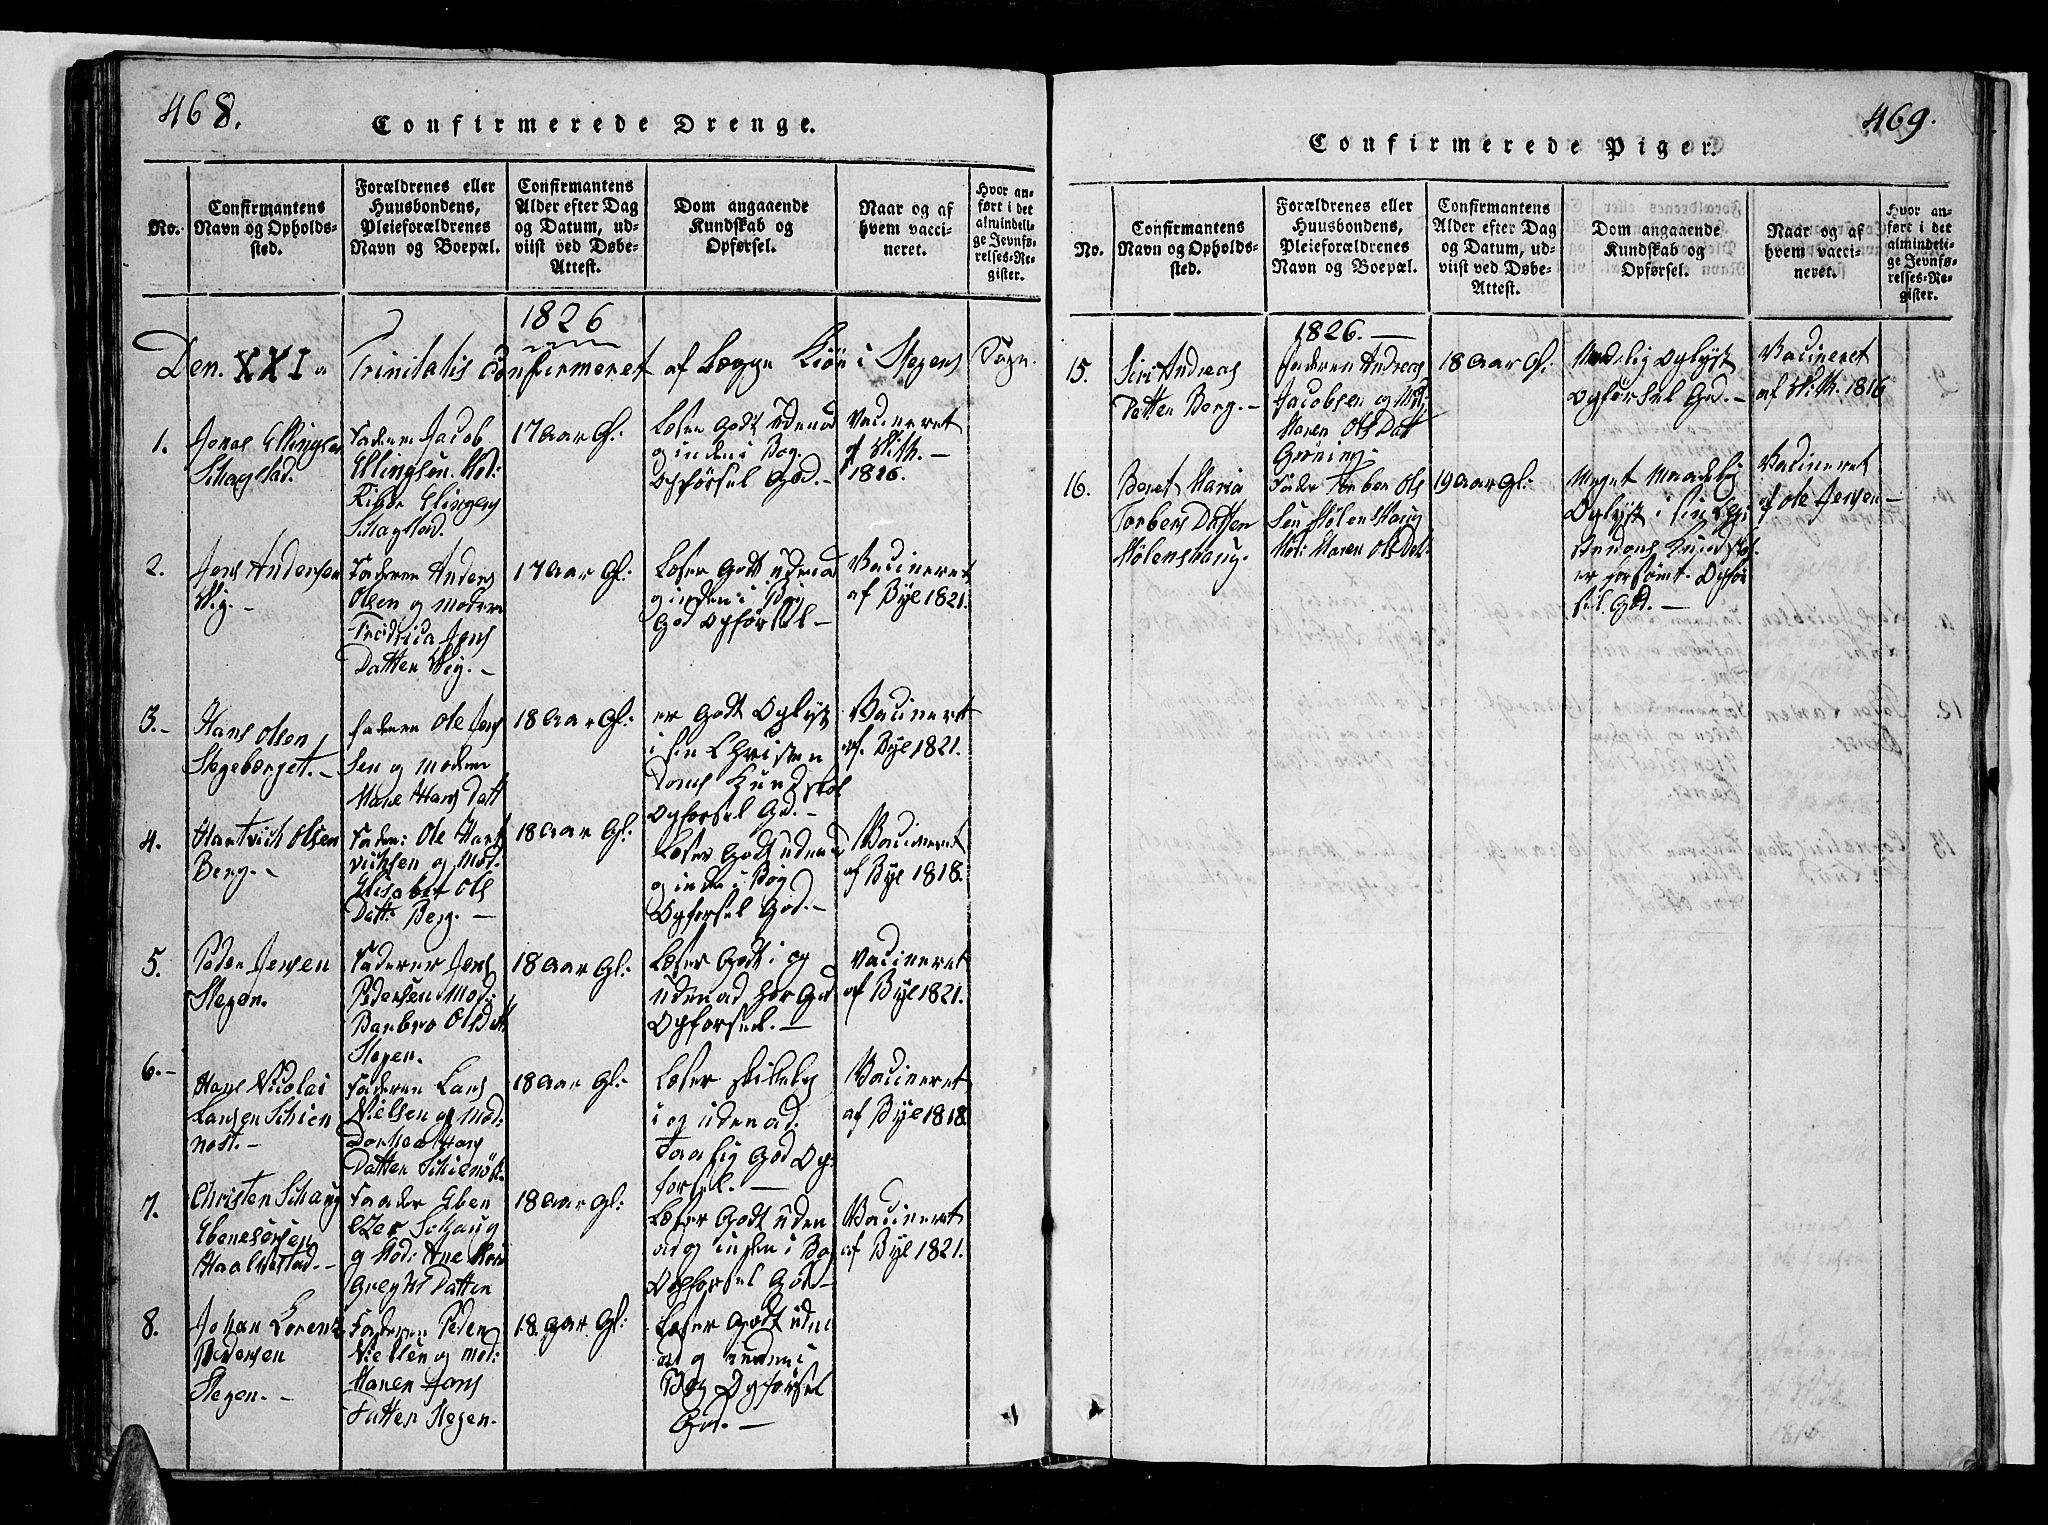 468.
Confirmerede Drenge.
No.
Confirmantens
Navn og Opholds-
sted.
Forældrenes eller
Huusbondens,
Pleieforældrenes
Navn og Boepæl.
Confirmantens
Alder efter Dag
og Datum, ud-
viist ved Døbe-
Attest.
Dom angaaende
Kundskab og
Opførsel.
Naar og af
hvem vacci-
neret.
Hvor an-
ført i det
almindeli-
ge Jevnfø-
relses-Re-
gister.
1826
Den XXI a Trinitatis Confirmeret af Lægge i Stegens Sogn.
1.
Jonas Ellingsen
Schagstad.
Faderen Jacob
Ellingsen. Mod:
Schagstad.
17 Aar Gl:
Læser Godt udenad
og inden i Bog.
Opförsel God.-
Vacineret
af
1816.
2.
Jens Andersen
Faderen Anders
Olsen og moderen
Fredrica Jens
Datter
17 Aar Gl:
Læser Godt udenad
og inden i Bog
God Opførsel-
Vacineret
af Bye 1821.
3.-
Hans Olsen
Stegeberget.-
faderen Ole Jens
Sen og moderen
Hans Datt
18 Aar Gl:
er Godt Oplyst
i sin Christen
doms Kundskab
Opførsel God.-
Vacineret
af Bye 1821.
4.
Hartvich Olsen
Berg.-
Fader: Ole Hart
vichsen og Mod.
Elisabet Ols
Datt: Berg.-
18 Aar Gl:
Læser Godt udenad
og inden i Bog
Opførsel God.-
Vacineret
af Bye 1818.
5.
Peder Jensen
Stegen.
Faderen Jens
Pedersen Mod:
Barbro Ols Datt
Stegen.
18 Aar Gl:
Læser Godt i og
udenad har God
Opførsel.-
Vacineret
af Bye 1821.
6.-
Hans Nicolai
Larsen Schien
nost.-
Faderen Lars
Nielsen og Mod:
Dorthea Hans
Datter
18 Aar Gl:
Læser skikkelig
i og udenad.
God Op
førsel.-
Vacineret
af Bye 1818.
7.
Christen Schaug
Ebenesörsen
Fader Eben
ezer Schaug
og Mod: Ane
Datter
18 Aar Gl:
Læser Godt uden
ad og inden i Bog
Opførsel God-
Vacineret
af Bye 1821.
8.
Johan Lorents
Pedersen
Stegen.-
Faderen Peder
Nielsen og mod:
Maren Jans
Datter Stegen.
18 Aar Gl:
Læser Godt uden
ad og inden i
Bog Opførsel
God.-
469.
Confirmerede Piger.
No.
Confirmantens
Navn og Opholds-
sted.
Forældrenes eller
Huusbondens,
Pleieforældrenes
Navn og Boepæl.
Confirmantens
Alder efter Dag
og Datum, ud-
viist ved Døbe-
Attest.
Dom angaaende
Kundskab og
Opførsel.
Naar og af
hvem vacci-
neret.
Hvor an-
ført i det
almindeli-
ge Jevnfø-
relses-Re-
gister.
1826.-
15.
Siri Andreas
Datter Berg.-
faderen Andreas
Jacobsen og Mod:
Maren Ols Datt
18 Aar Gl:
Maadelig Oplyst
Opførsel God.-
Vacineret
af 1816
16.
Beret Maria
Torbers Datter
Fader Torber Ols
Sen
Mod: Maren Ols Dat:
19 Aar Gl:
Meget Maadelig
Oplyst i sin Chri
stendoms Kundskab
er forsømt. Opfør
sel God.-
Vacineret
af Ole Jensen-